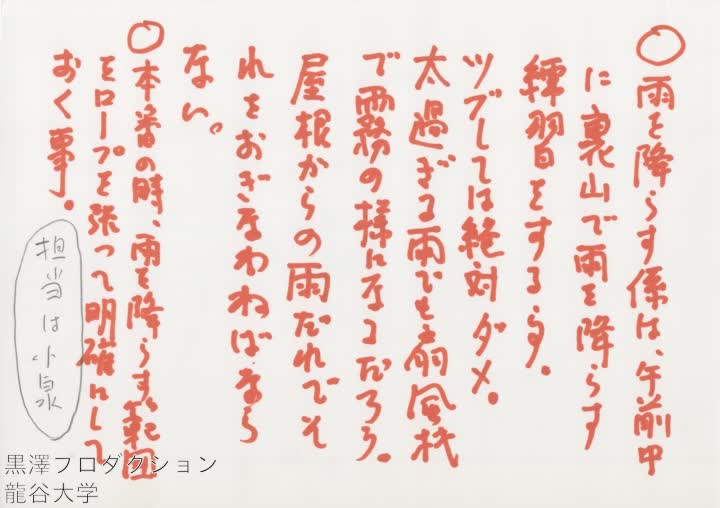 ○雨を降らす係は、午前中
に裏山で雨を降らす
練習をする。
ツブしては絶対ダメ。
太過ぎる雨でも扇風機
で霧の様になるだろう。
屋根からの雨だれでそ
れをおぎなわねばなら
ない。
○本番の時、雨を降らす範囲
をロープを張って明確にして
おく事。
担当は小泉
黒澤プロダクション
龍谷大学